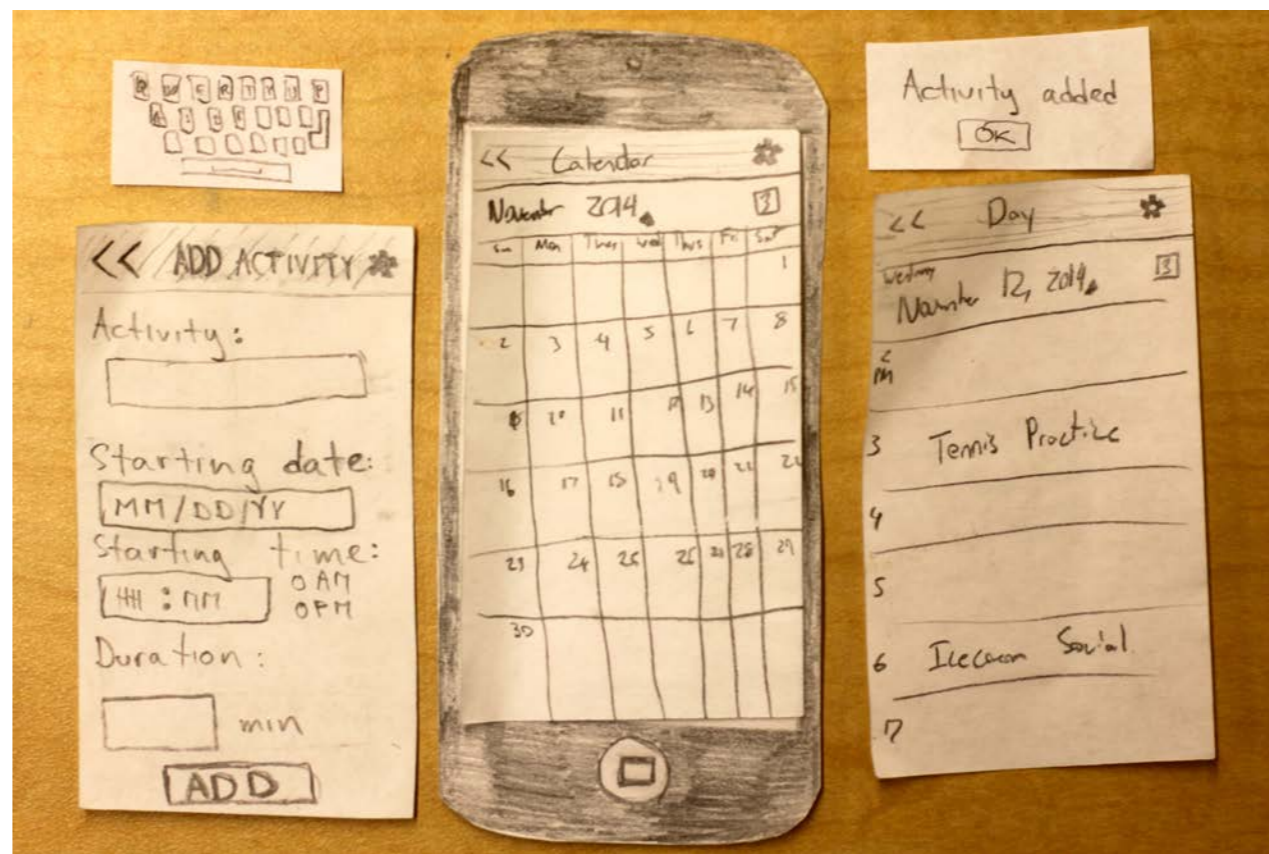 Q W E R T Y U P
<< ADD ACTIVITY
Activity:
Starting date:
MM/DD/YY
Starting time:
HH : MM
O AM
O PM
Duration:
min
ADD
<< Calendar
November 2014
3
Sun Mon Tues Wed Thurs Fri Sat
1
2 3 4 5 6 7 8
10 11 12 13 14 15
16 17 18 19 20 21 22
23 24 28 29
30
Activity added
OK
<< Day
Wednesday
November 12, 2014
3
PM
3 Tennis Practice
4
5
6 Icecream Social
7